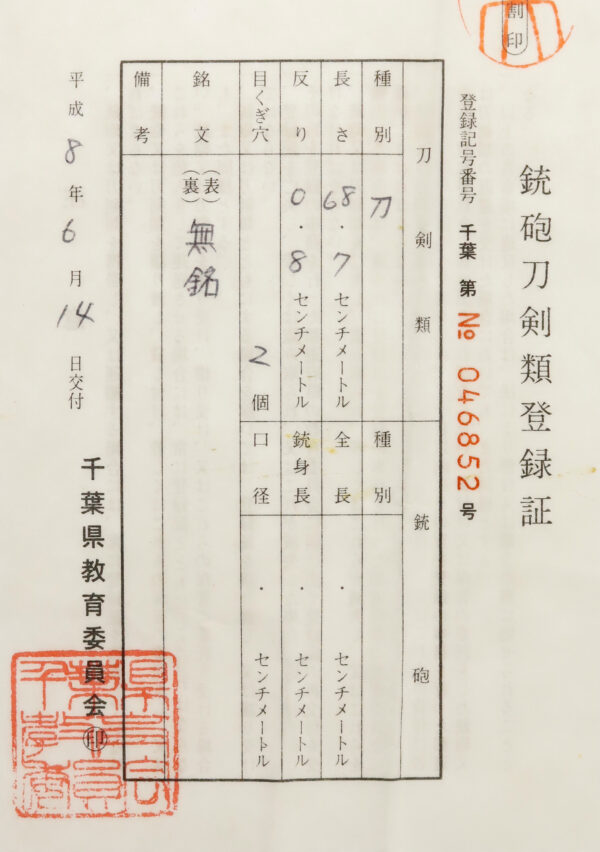 割印
銃砲刀剣類登録証
登録記号番号 千葉 第 № 046852 号
刀剣類
銃砲
種別 刀
種別
長さ 68.7 センチメートル
全長 ・ センチメートル
反り 0.8 センチメートル
銃身長 ・ センチメートル
目くぎ穴 2 個
口径 ・ センチメートル
銘文 (表) (裏) 無銘
備考
平成 8 年 6 月 14 日交付
千葉県教育委員会 ㊞